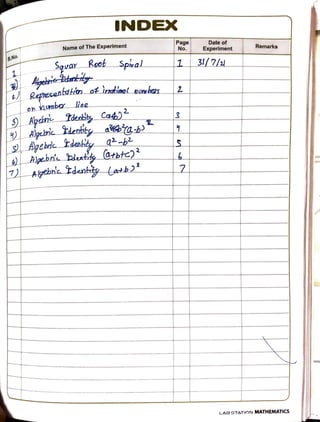 INDEX
S.No. Name of The Experiment Page No. Date of Experiment Remarks
1 Squar Root Spiral 1 31/7/21
2) Representation of irrational numbers 2
on number line
3) Algebric Identity (a+b)² 3
4) Algebric Identity (a-b)² 4
5) Algebric Identity a²-b² 5
6) Algebric Identity (a+b+c)² 6
7) Algebric Identity (a+b)³ 7
LAB STATION MATHEMATICS